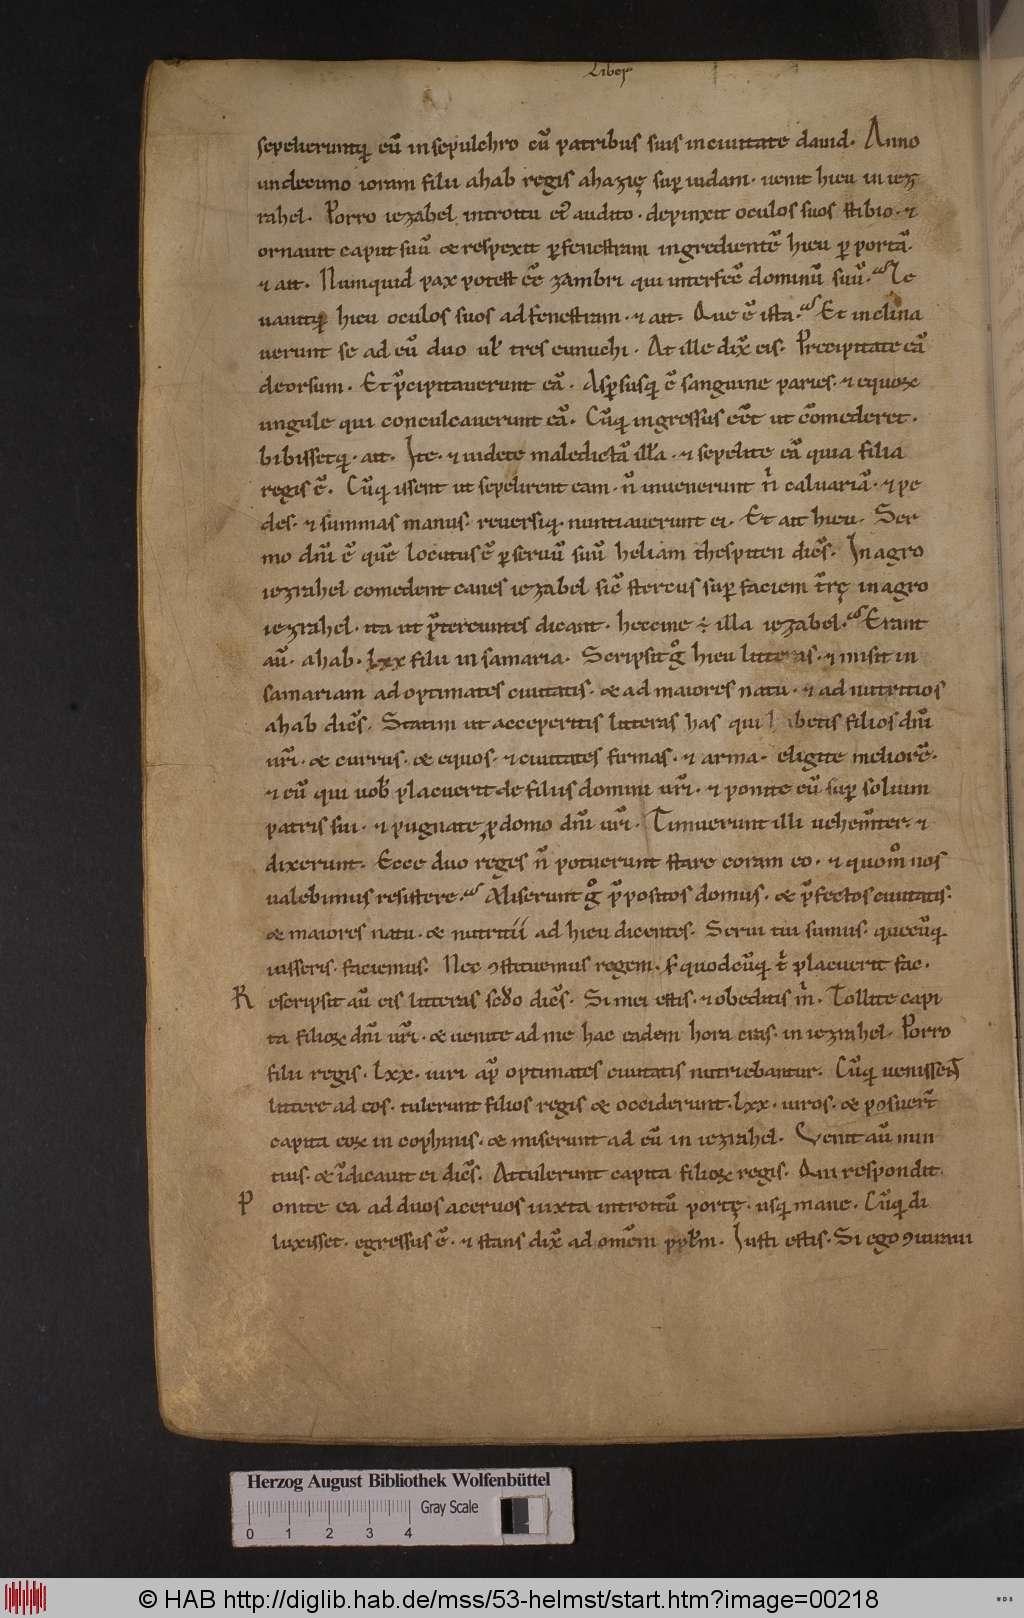 Liber
sepelieruntq; eū in sepulchro cū patribus suis in ciuitate dauid. Anno
undecimo ioram filii ahab regis ahazię sup iudam. uenit hieu in iez
rahel. Porro iezabel introitu ei᷒ audito. depinxit oculos suos stibio. ⁊
ornauit caput suū & respexit p fenestram ingredientē hieu p portā.
⁊ ait. Numquid pax potest eē zambri qui interfeĉ dominū suū. Le
uauitq; hieu oculos suos ad fenestram. ⁊ ait. Que ē ista. Et inclina
uerunt se ad eū duo ul' tres eunuchi. At ille dix̄ eis. Precipitate eā
deorsum. Et p̄cipitauerunt eā. Aspsusq; ē sanguine paries. ⁊ equoꝝ
ungule qui conculcauerunt eā. Cūq; ingressus eēt ut cōmederet.
bibissetq;. ait. Ite. ⁊ uidete maledictā illā. ⁊ sepelite eā quia filia
regis ē. Cūq; issent ut sepelirent eam. ñ inuenerunt n̄ caluariā. ⁊ pe
des. ⁊ summas manus. reuersiq; nuntiauerunt ei. Et ait hieu. Ser
mo dn̄i ē quē locutus ē p seruū suū heliam thespiten diēs. In agro
iezrahel comedent canes iezabel sic̄ stercus sup faciem t̄rę in agro
iezrahel. ita ut p̄tereuntes dicant. heccine ÷ illa iezabel. Erant
aū. ahab. lxx filii in samaria. Scripsit g̊ hieu litteras. ⁊ misit in
samariam ad optimates ciuitatis. & ad maiores natu. ⁊ ad nutritios
ahab diēs. Statim ut acceperitis litteras has qui habetis filios dn̄i
ur̄i. & currus. & equos. ⁊ ciuitates firmas. ⁊ arma. eligite meliorē.
⁊ eū qui uob' placuerit de filiis domini ur̄i. ⁊ ponite eū sup solium
patris sui. ⁊ pugnate p domo dn̄i ur̄i. Timuerunt illi uehem̄ter. ⁊
dixerunt. Ecce duo reges ñ potuerunt stare coram eo. ⁊ quom̊ nos
ualebimus resistere. Miserunt g̊ p̄positos domus. & p̄fectos ciuitatis.
& maiores natu. & nutritii ad hieu dicentes. Serui tui sumus. quecūq;
iusseris. faciemus. Nec ꝯstituemus regem. s; quodcūq; t̄ placuerit fac.
Rescripsit aū eis litteras scdo diēs. Si mei estis. ⁊ obeditis m̄. Tollite capi
ta filioꝝ dn̄i ur̄i. & uenite ad me hac eadem hora cras. in iezrahel. Porro
filii regis. lxx. uiri ap̄ optimates ciuitatis nutriebantur. Cūq; uenissent
littere ad eos. tulerunt filios regis & occiderunt. lxx. uiros. & posuer̄t
capita eoꝝ in cophinis. & miserunt ad eū in iezrahel. Venit aū nun
tius. & īdicauit ei diēs. Attulerunt capita filioꝝ regis. Qui respondit.
Ponite ea ad duos aceruos iuxta introitū portę. usq; mane. Cūq; di
luxisset. egressus ē. ⁊ stans dix̄ ad omēm pp̄lm. Iusti estis. Si ego ꝯiuraui
Herzog August Bibliothek Wolfenbüttel
Gray Scale
0 1 2 3 4
© HAB http://diglib.hab.de/mss/53-helmst/start.htm?image=00218